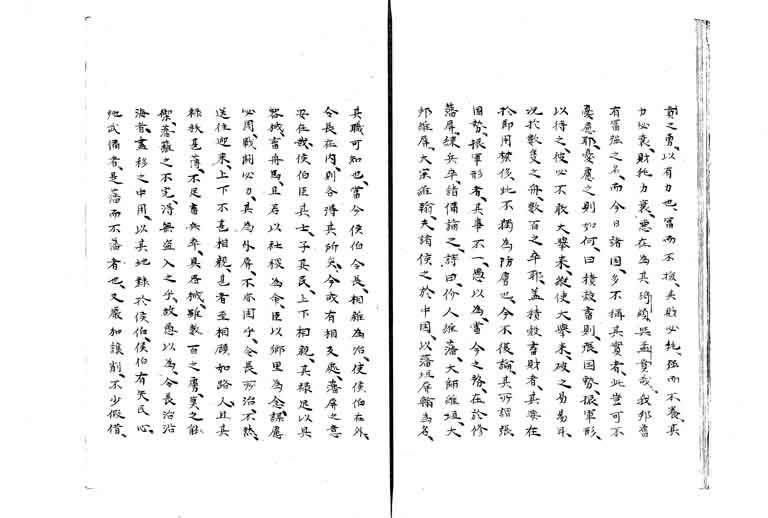 賁之勇、以有力也、富而不撥、失財必耗、强而不養、其
力必衰、財耗力衰、惡在為其猗頓吳孟賁哉、我邦舊
有富强之名、而今日諸国、多不稱其實者、此豈可不
憂慮耶、憂慮之則如何、曰積穀畜財、張国勢振軍形、
以待之、彼必不敢大擧来、縱使大擧来、破之易易耳、
況於數隻之舟、數百之卒耶、蓋積穀畜財者、其要在
於節用檢後、此不獨為防虜也、今不復論、其所謂張
国勢、振軍形者、其事不一、愚以為、當今之務、在於修
藩屏、練兵卒、請備論之、詩曰、价人維藩、大師維垣、大
邦維屏、大宗維翰、夫諸侯之於中国、以藩垣屏翰為名、
其職可知也、當今侯伯令長、相雜為治、使侯伯在外、
令長在内、則各得其所矣、今或有相反處、藩屏之意
安在哉、侯伯臣其士、子其民、上下相親、其禄足以具
器械畜舟馬、且君以社稷為命、臣以鄉里為念、謀慮
必周、戰鬪必力、其為外屏、不亦固乎、令長所治不然、
送往迎来、上下不甚相親、甚者至相顧如路人、且其
禄秩甚薄、不足畜兵卒、具居械、雖數百之虜、莫之能
禦、藩籬之不完、得無盗入之乎、故愚以為、令長治沿
海者、盡移之中用、以其地隷於侯伯、侯伯有失民心、
弛武備者、是藩而不藩者也、又嚴加譲削、不少假借、